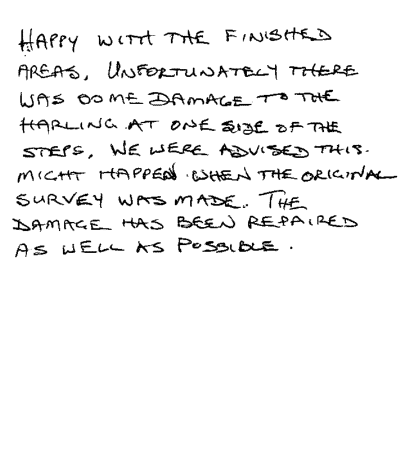 HAPPY WITH THE FINISHED
AREAS, UNFORTUNATELY THERE
WAS SOME DAMAGE TO THE
HARLING AT ONE SIDE OF THE
STEPS, WE WERE ADVISED THIS.
MIGHT HAPPEN WHEN THE ORIGINAL
SURVEY WAS MADE. THE
DAMAGE HAS BEEN REPAIRED
AS WELL AS POSSIBLE.